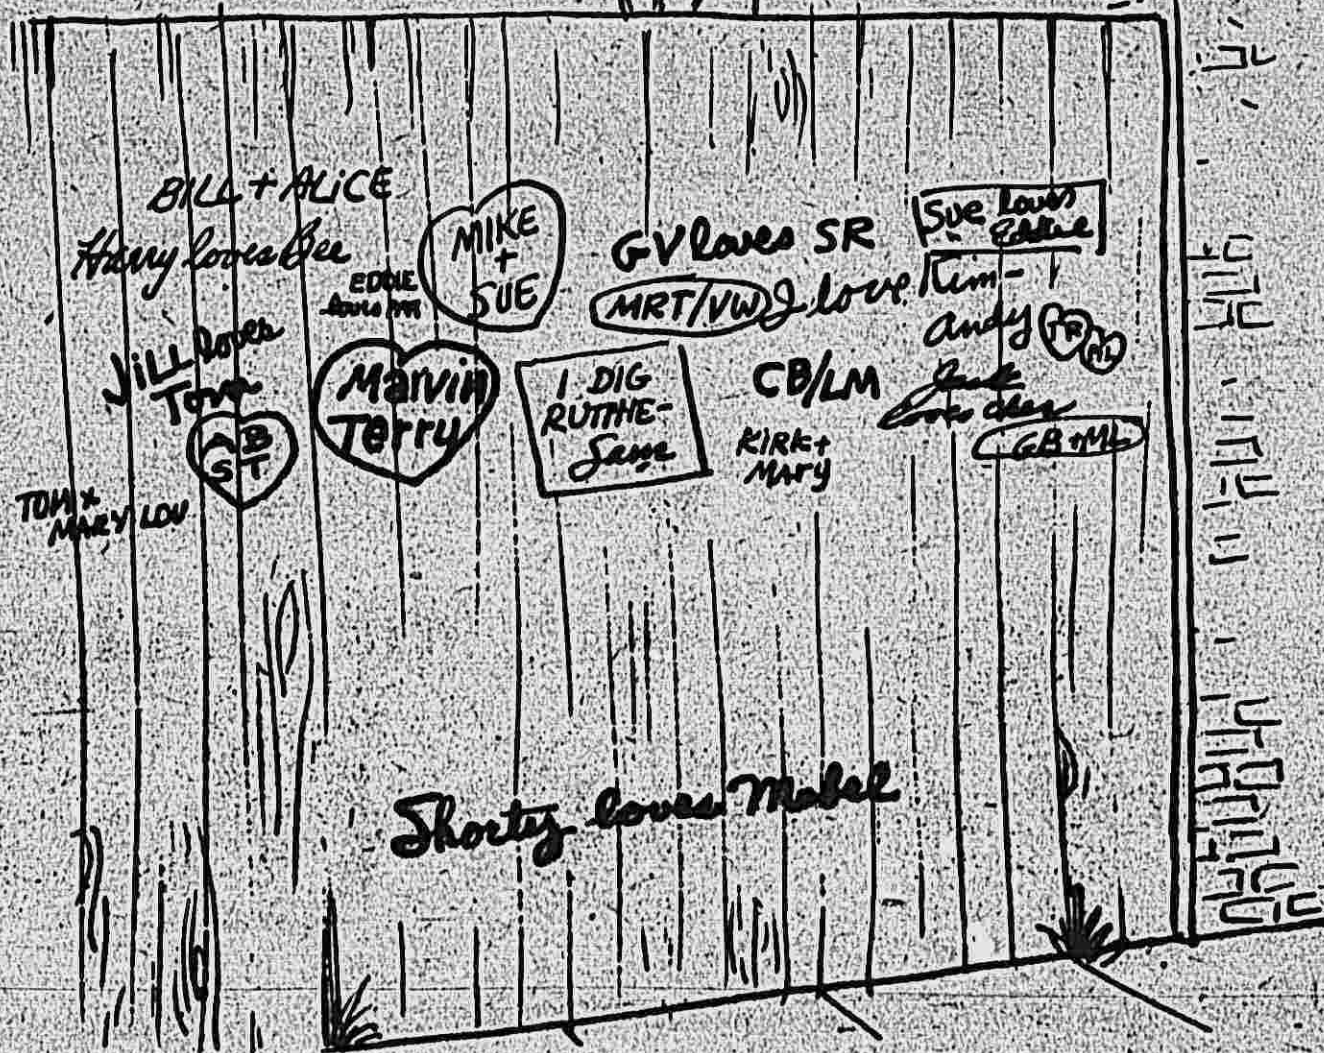 BILL + ALICE
Harry loves Bee
EDDIE
loves
MIKE
+
SUE
GV loves SR
Sue loves
Eddie
MRT/VW
I love Kim-
Andy
JiLL loves
Tom
Marvin
Terry
I DIG
RUTHIE-
Sam
CB/LM
Jack
loves
KIRK+
MARY
GB+ML
A B
S T
TOM +
MARY LOU
Shorty loves Mabel